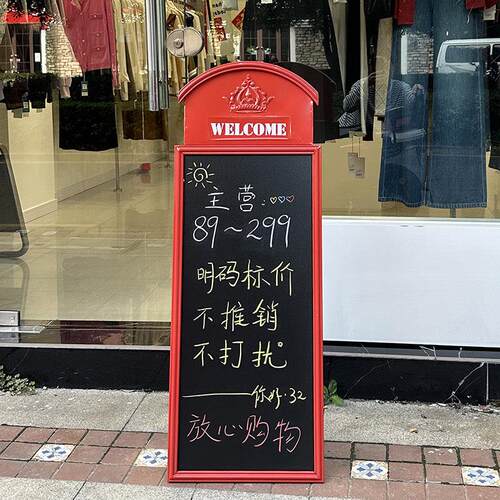 WELCOME
主营:
89~299
明码标价
不推销
不打扰。
——你好·32
放心购物